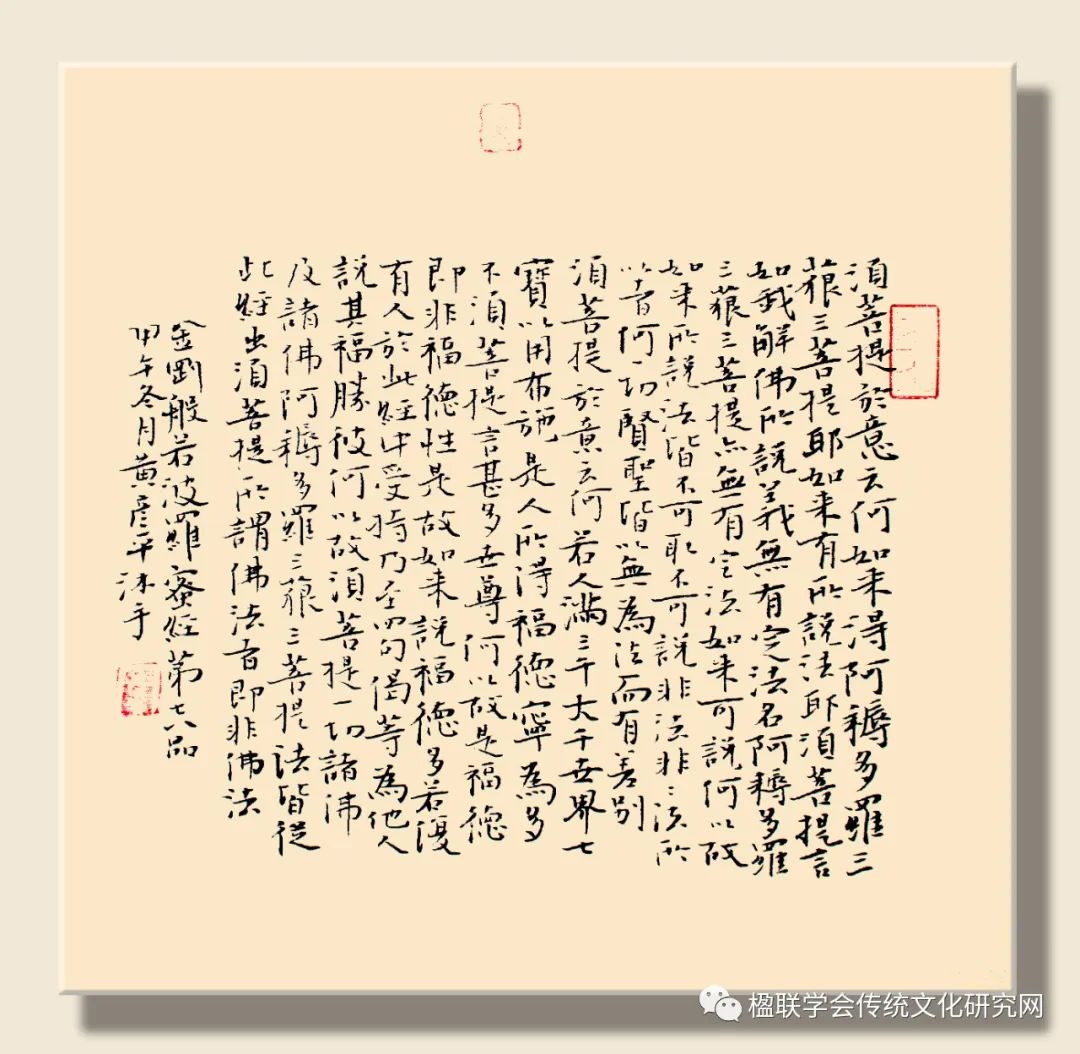 須菩提於意云何如来得阿耨多羅三
藐三菩提耶如来有所說法耶須菩提言
如我解佛所說義無有定法名阿耨多羅
三藐三菩提亦無有定法如来可說何以故
如来所說法皆不可取不可說非法非〻法所
以者何一切賢聖皆以無為法而有差别
須菩提於意云何若人滿三千大千世界七
寶以用布施是人所得福德寧為多
不須菩提言甚多世尊何以故是福德
即非福德性是故如来說福德多若復
有人於此經中受持乃至四句偈等為他人
說其福勝彼何以故須菩提一切諸佛
及諸佛阿耨多羅三藐三菩提法皆從
此經出須菩提所謂佛法者即非佛法
金剛般若波羅蜜經第七八品
甲午冬月黄彦平沐手
楹联学会传统文化研究网